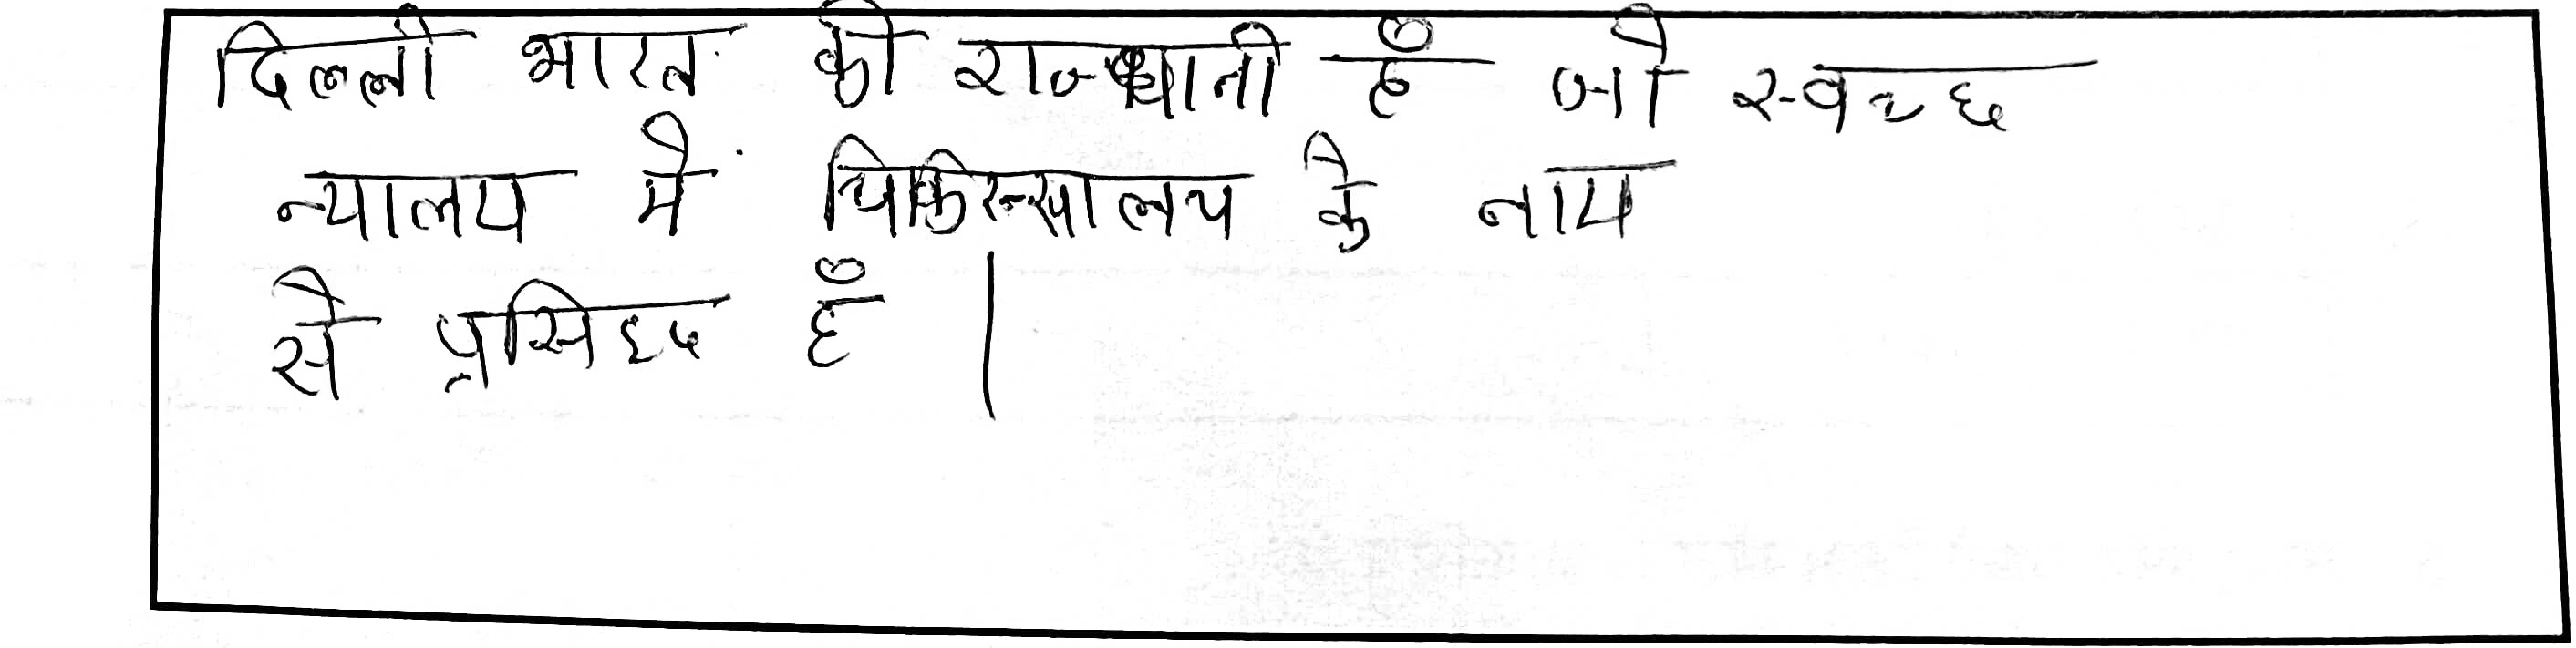 दिल्ली भारत की राज्धानी हैं जो स्वच्छ
न्यालय में चिकित्सालय के नाम
से प्रसिद्ध हैं |